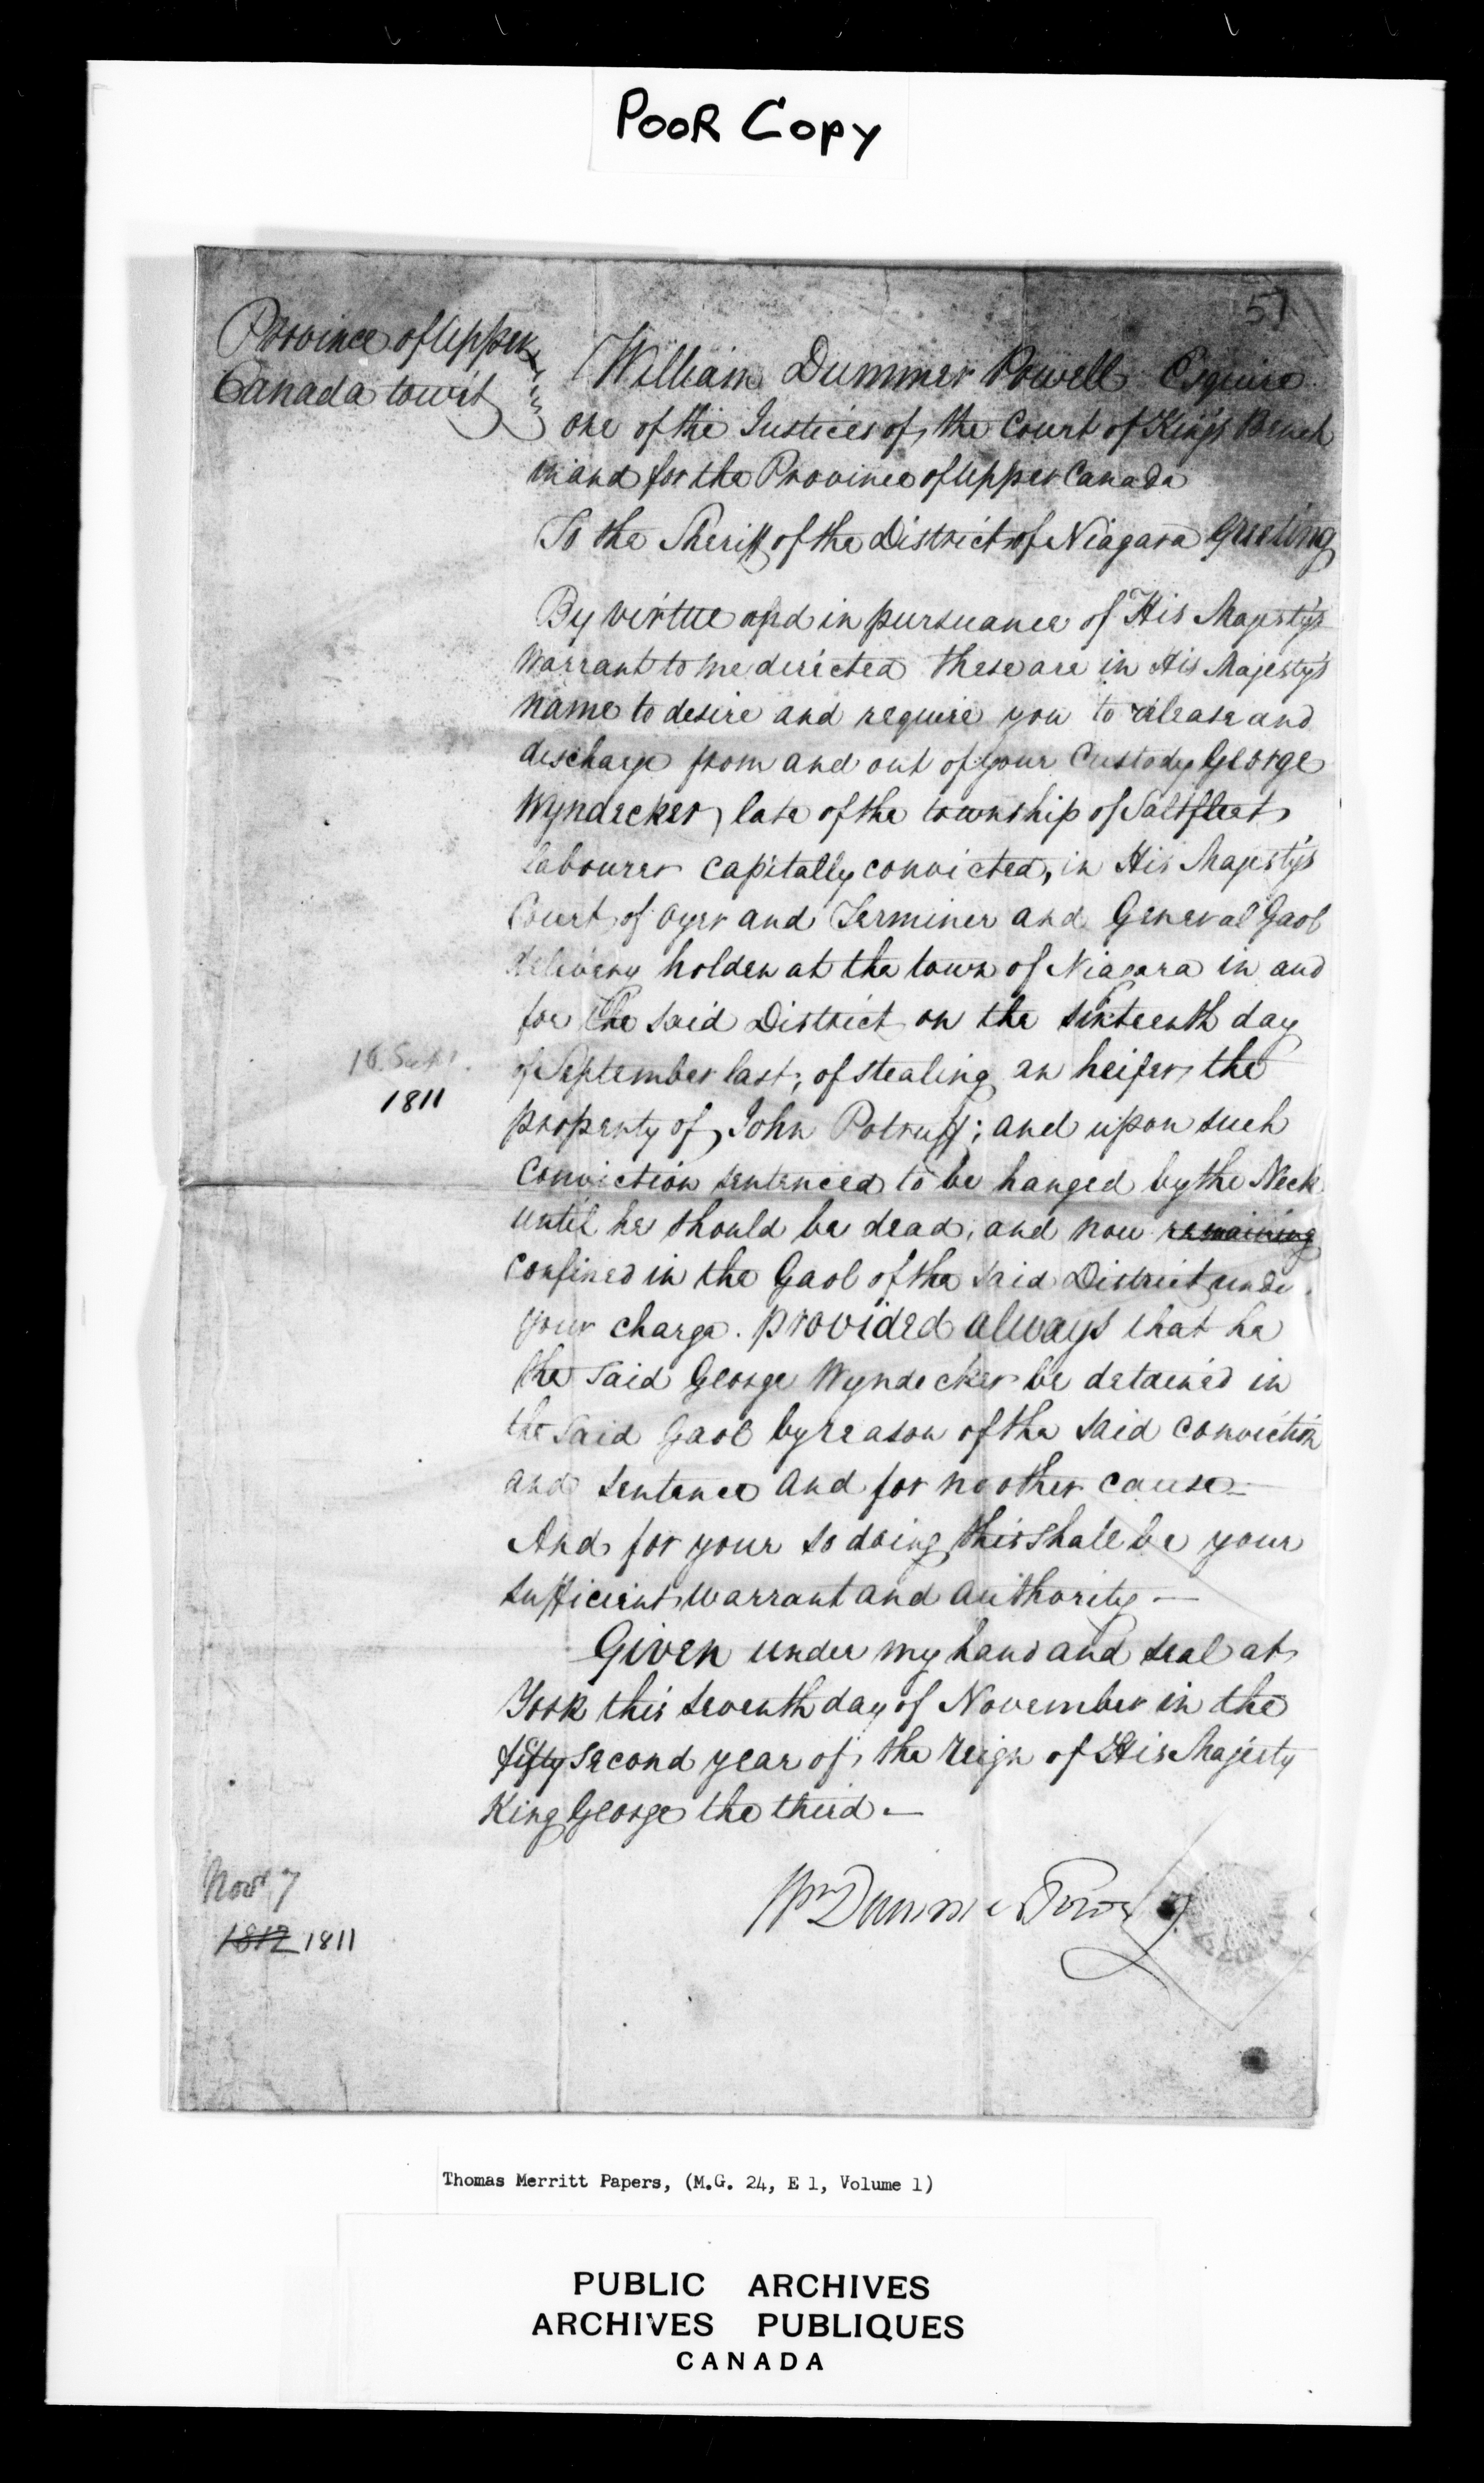 PooR Copy
51
Province of Upper
Canada to wit
William Dummer Powell Esquire
one of the Justices of the Court of King's Bench
in and for the Province of Upper Canada
To the Sheriff of the District of Niagara Greeting
By virtue and in pursuance of His Majesty's
Warrant to me directed these are in His Majesty's
name to desire and require you to release and
discharge from and out of your Custody George
Wyndecker, late of the township of Saltfleet
labourer capitally convicted, in His Majesty's
Court of Oyer and Terminer and General Gaol
delivery holden at the town of Niagara in and
for the said District on the sixteenth day
of September last; of stealing an heifer, the
16 Sept.
1811
property of John Potruff; and upon such
Conviction sentenced to be hanged by the Neck
until he should be dead; and now remaining
confined in the Gaol of the said District unde
your charge. provided always that he
the said George Wyndecker be detained in
the said Gaol by reason of the said conviction
and sentence and for no other cause—
And for your so doing this shall be your
sufficient warrant and authority —
Given under my hand and seal at
York this seventh day of November in the
fifty second year of the Reign of His Majesty
King George the third. —
Wm Dummer Powell
Novr 7
1812 1811
Thomas Merritt Papers, (M.G. 24, E 1, Volume 1)
PUBLIC ARCHIVES
ARCHIVES PUBLIQUES
CANADA